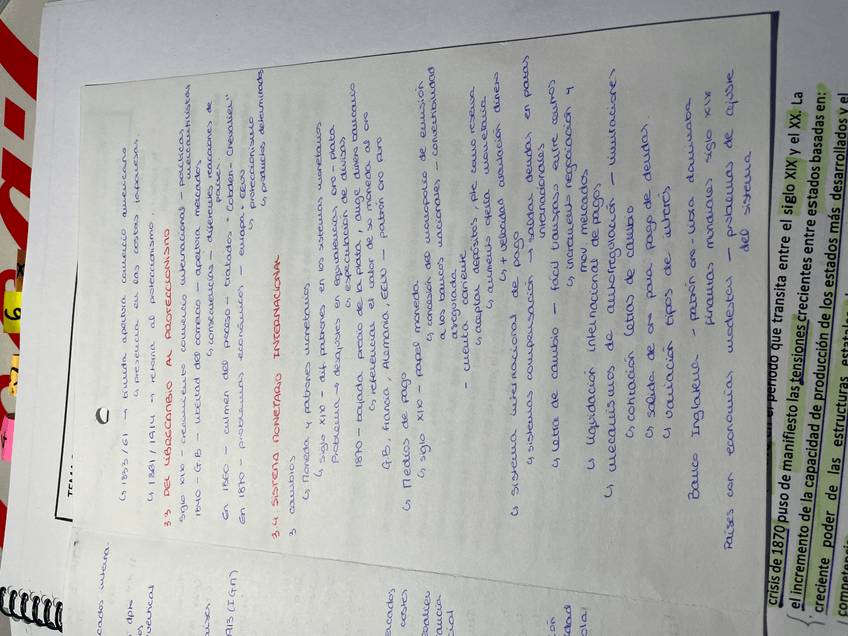 ↳ 1853/61 → tímida apertura comercio americano
↳ presencia en las costas japonesas.
↳ 1861/1914 → retorno al proteccionismo.
3.3. DEL LIBRECAMBIO AL PROTECCIONISMO
Siglo XIX - crecimiento comercio internacional - políticas
mercantilistas
1840 - G.B - libertad del comercio - apertura mercados
↳ consecuencias - diferentes reacciones de
países.
En 1860 - culmen del proceso - tratados "Cobden-Chevalier"
En 1870 - problemas económicos - Europa + EEUU
↳ proteccionismo
↳ productos determinados
3.4. SISTEMA MONETARIO INTERNACIONAL
3 cambios
↳ Moneda y patrones monetarios.
↳ siglo XIX - dif. patrones en los sistemas monetarios
Problema → desajustes en equivalencias oro-plata
↳ especulación de divisas
1870 - bajada precio de la plata, auge dinero bancario
↳ referencian el valor de su moneda al oro
G.B, Francia, Alemania, EEUU - patrón oro puro
↳ Medios de pago
↳ siglo XIX - papel moneda.
↳ concesión del monopolio de emisión
a los bancos nacionales - convertibilidad
asegurada
- cuenta corriente
↳ aceptan depósitos, pte como reserva
↳ aumento oferta monetaria
↳ + velocidad circulación dinero
↳ Sistema internacional de pago
↳ sistemas compensación → saldar deudas en pagos
internacionales
↳ letra de cambio - fácil traspaso entre
↳ incremento negociación y
mov. mercados
↳ liquidación internacional de pagos
↳ mecanismos de autorregulación - limitaciones
↳ cotización letras de cambio
↳ salida de oro para pago de deudas.
↳ variación tipos de interés
Banco Inglaterra - patrón oro - libra dominaba
finanzas mundiales siglo XIX
Países con economías modestas - problemas de ajuste
del sistema
cados interna.
dpts
vertical
913 (I.G.M)
ercados
costes
crisis de 1870 puso de manifiesto las tensiones crecientes entre estados basadas en:
el periodo que transita entre el siglo XIX y el XX. La
el incremento de la capacidad de producción de los estados más desarrollados y el
creciente poder de las estructuras estatales
6